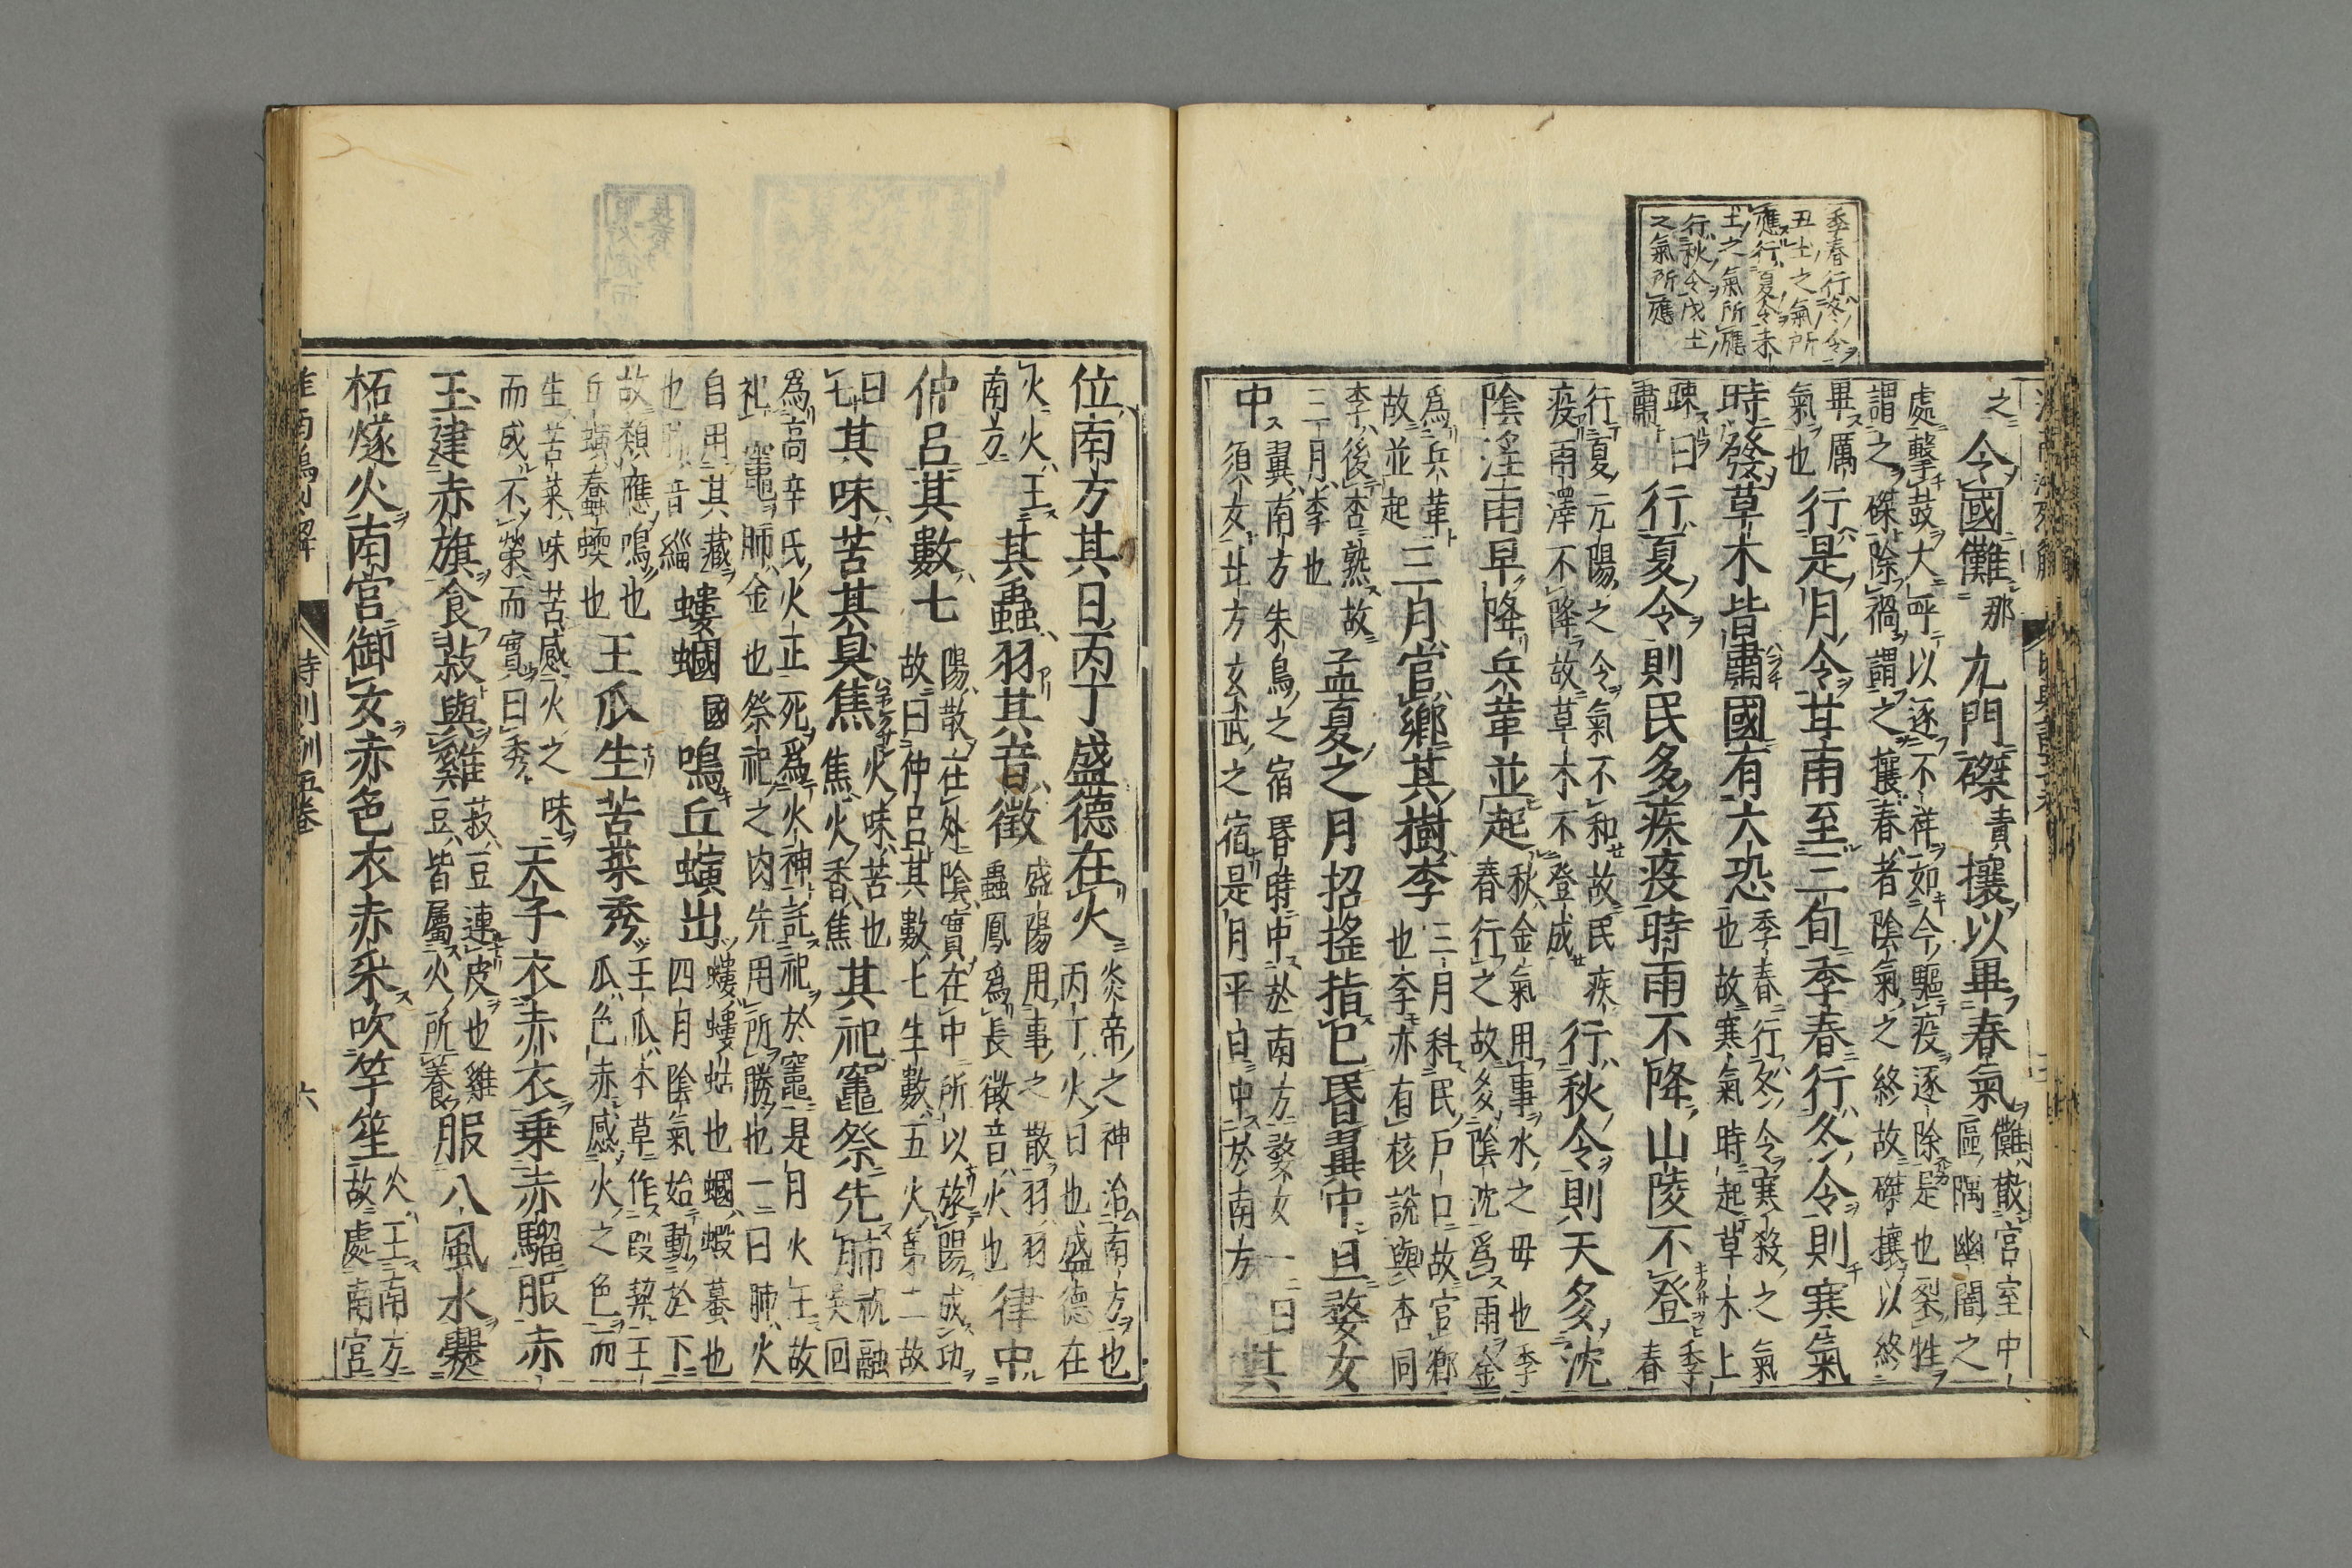 季春行冬令
丑土之氣所
應行夏令未
土之氣所應
行秋令戊土
之氣所應
之令國儺那九門磔責攘以畢春氣儺散宮室中
區隅幽闇之
處擊鼓大呼以逐不祥如今驅疫逐除是也裂牲
謂之磔除禍謂之攘春者陰氣之終故磔攘以終
畢厲
氣也行是月令甘雨至三旬季春行冬令則寒氣
時發草木皆肅國有大恐季春行冬令寒殺之氣
也故寒氣時起草木上
踈曰
肅行夏令則民多疾疫時雨不降山陵不登季
春
行夏亢陽之令氣不和故民疾
疫雨澤不降故草木不登成行秋令則天多沈
陰淫雨早降兵革並起秋金氣用事水之母也季
春行之故多陰沈爲雨金
爲兵革
故並起三月官鄉其樹李三月科民戶口故官鄉
也李亦有核說與杏同
李後杏熟故
三月李也孟夏之月招搖指巳昏翼中旦婺女
中翼南方朱鳥之宿昏時中於南方婺女一曰
須女北方玄武之宿是月平旦中於南方其
位南方其日丙丁盛德在火炎帝之神治南方也
丙丁火日也盛德在
火火王
南方其蟲羽其音徵盛陽用事之散羽羽
蟲鳳爲長徵音火也律中
仲呂其數七陽散在外陰實在中所以旅陽成功
故曰仲呂其數七生數五火第二故
曰
七其味苦其臭焦火味苦也
焦火香焦其祀竈祭先肺祝融
吳回
爲高辛氏火正死爲火神託祀於竈是月火王故
祀竈肺金也祭祀之肉先用所勝也一曰肺火
自用其藏
也音緇螻蟈國鳴丘螾出螻螻蛄也蟈蝦蟇也
四月陰氣始動於下
故類應鳴也
丘螾蠢蝡也王瓜生苦菜秀王瓜本草作段契王
瓜色赤感火之色而
生苦菜味苦感火之味
而成不榮而實曰秀天子衣赤衣乘赤騮服赤
玉建赤旗食菽與雞菽豆連皮也雞
豆皆屬火所養服八風水爨
柘燧火南宮御女赤色衣赤采吹竽笙火王南方
故處南宮
時則訓五卷
六